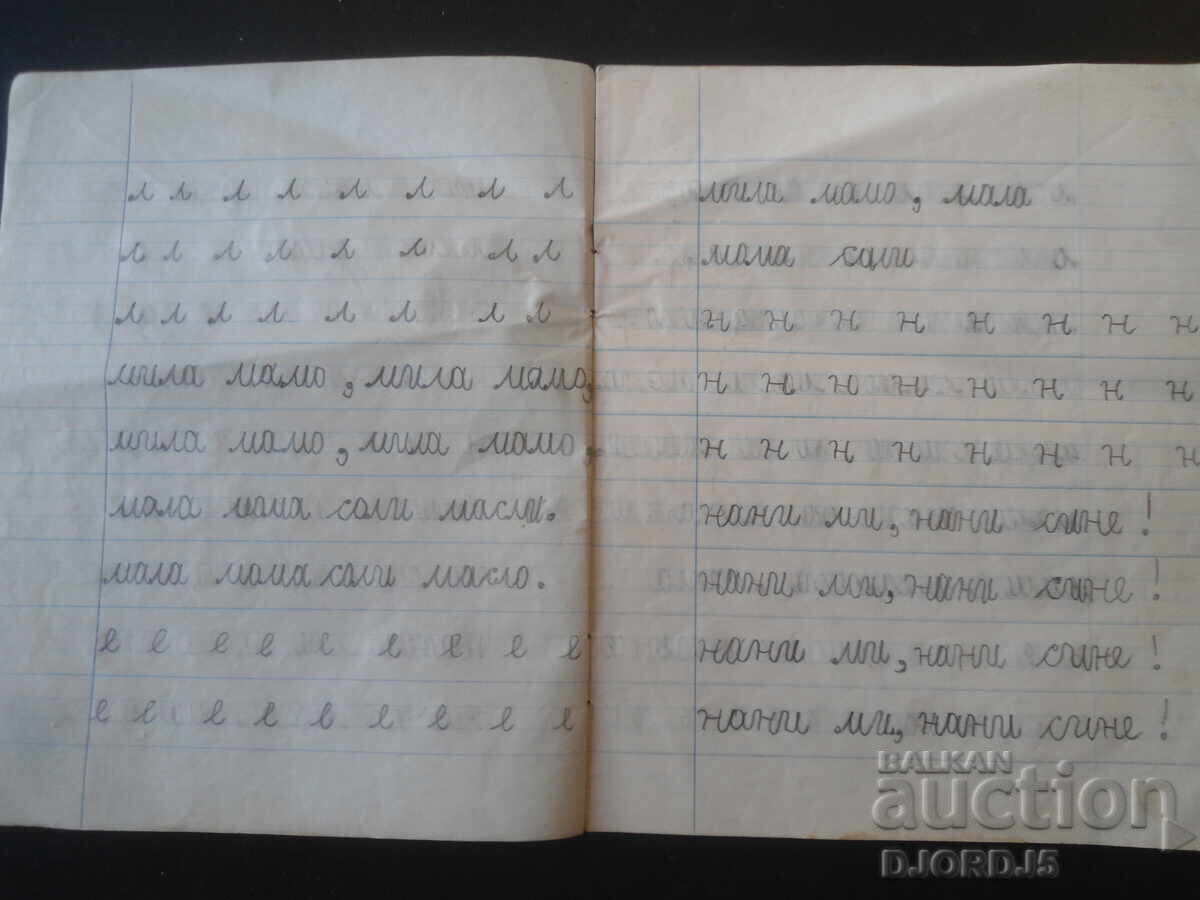 л л л л л л л л
л л л л л л л л
л л л л л л л л
мила мамо, мила мямо,
мила мамо, мила мамо,
мала мома соли масли.
мала мома соли масло.
е е е е е е е е е
е е е е е е е е е
мила мамо, мала
мома соли
н н н н н н н н
н н н н н н н н
н н н н н н н н
нани ми, нани сине!
нани ми, нани сине!
нани ми, нани сине!
нани ми, нани сине!
BALKAN
auction
DJORDJ5